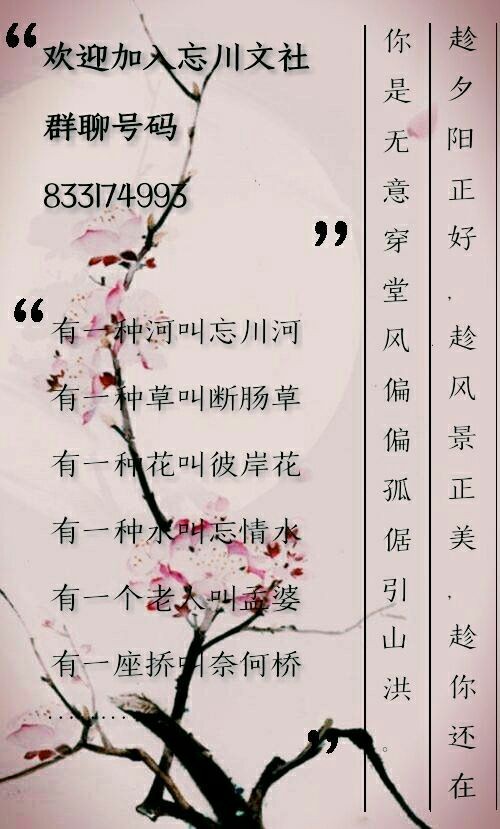 “欢迎加入忘川文社
群聊号码
833174993
”
“有一种河叫忘川河
有一种草叫断肠草
有一种花叫彼岸花
有一种水叫忘情水
有一个老人叫孟婆
有一座挢叫奈何桥
…………”
趁夕阳正好，趁风景正美，趁你还在
你是无意穿堂风偏偏孤倨引山洪。